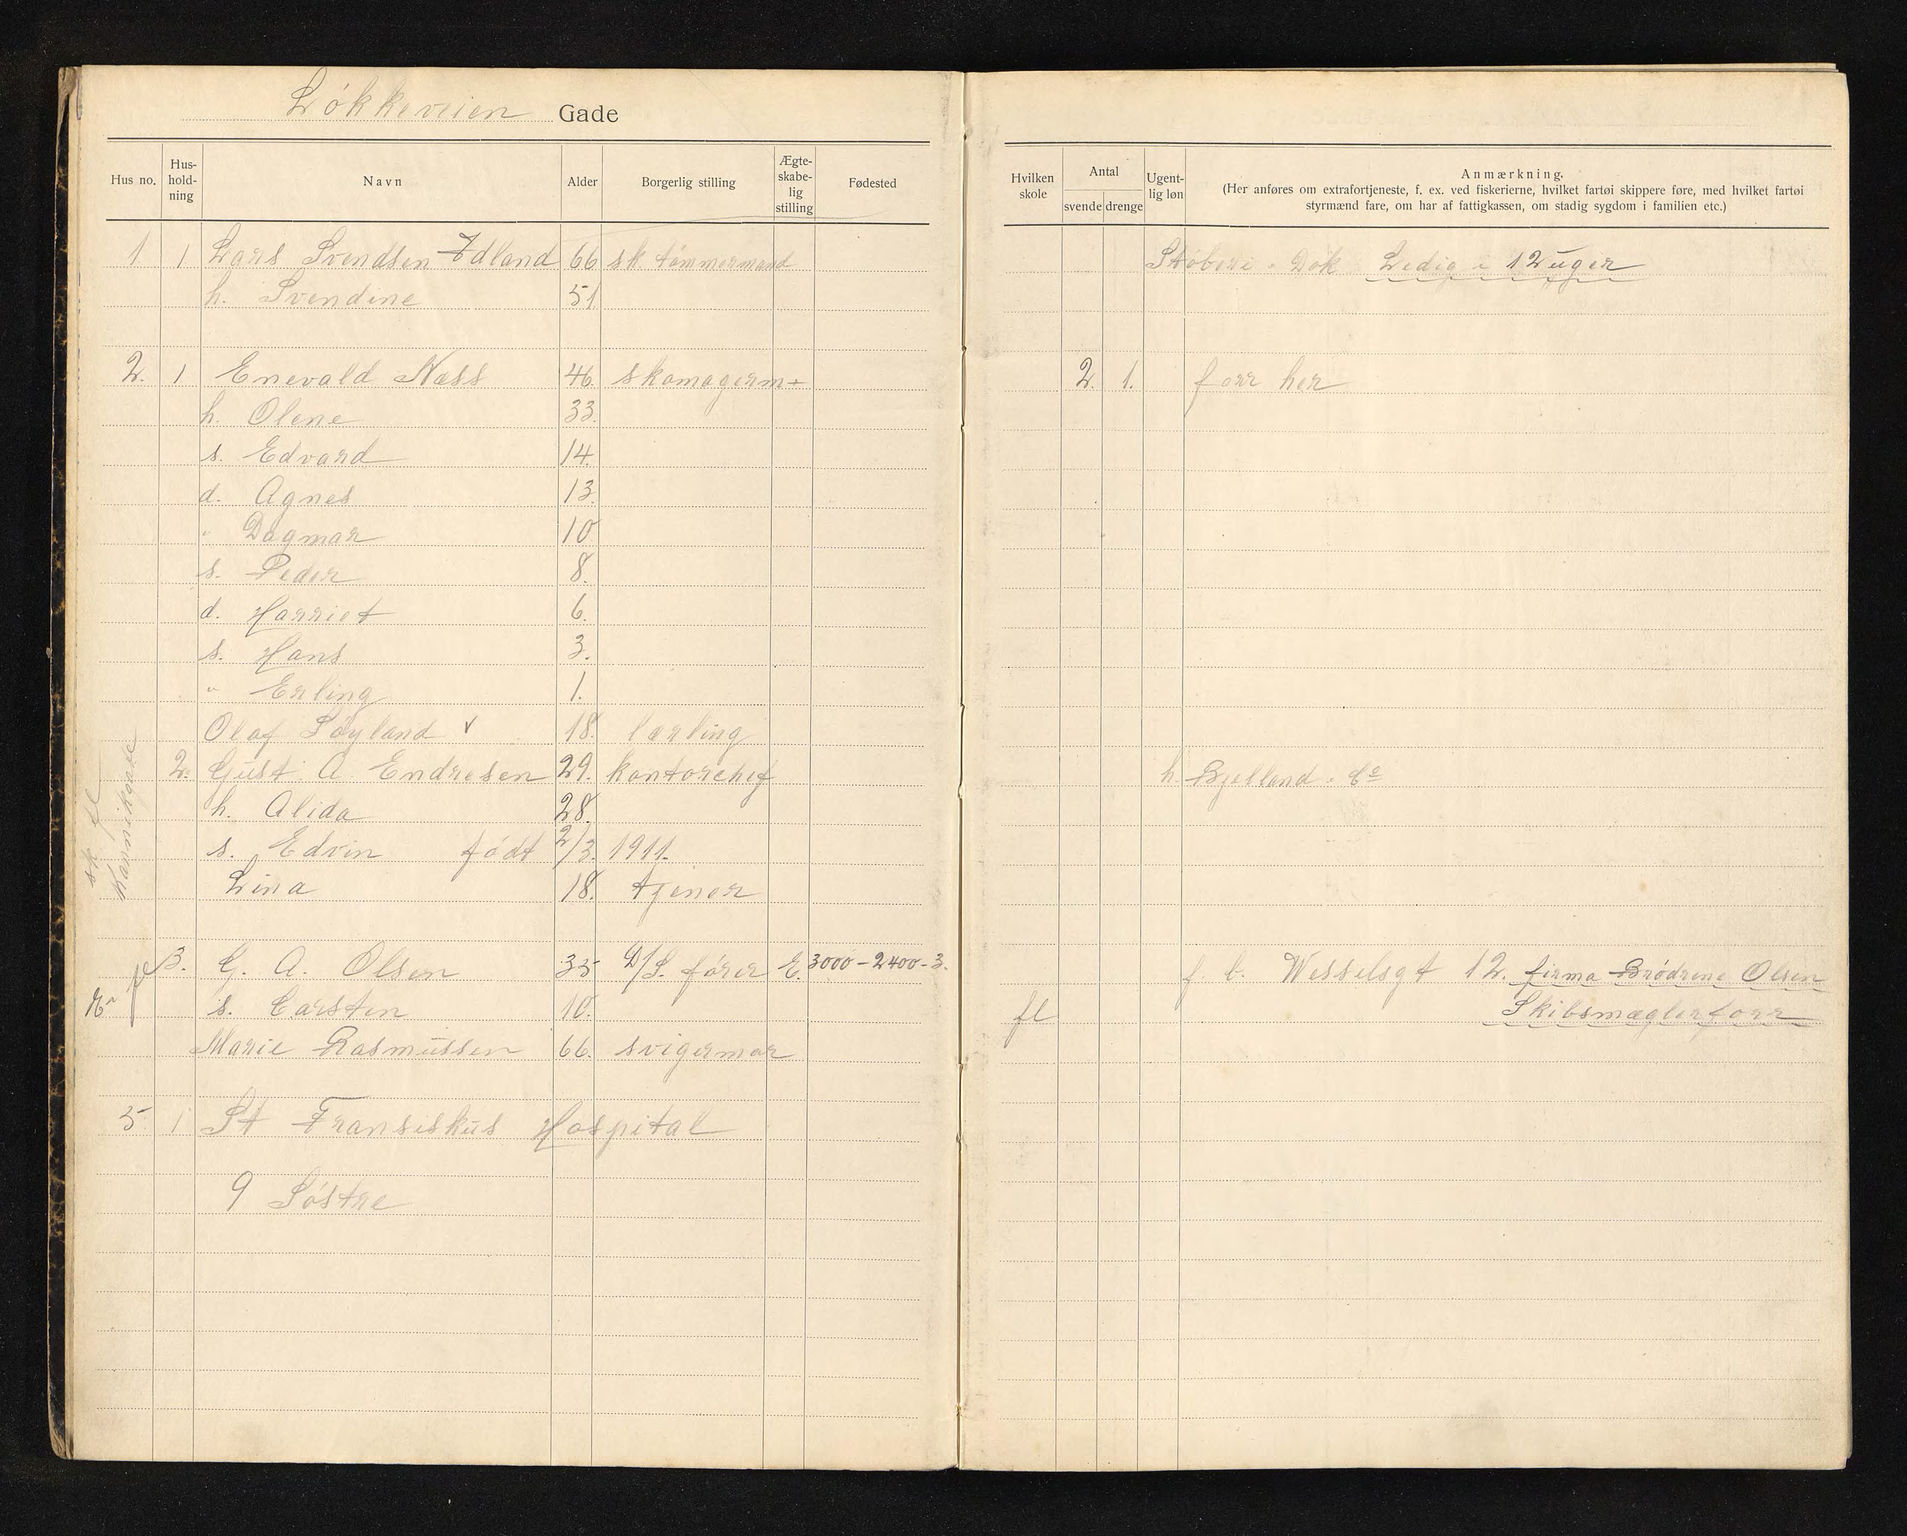 Løkkeveien Gade
Hus no. Hus-hold-ning Navn Alder Borgerlig stilling Ægte-skabe-lig stilling Fødested
Hvilken skole Antal svende drenge Ugent-lig løn Anmærkning.
(Her anføres om extrafortjeneste, f. ex. ved fiskerierne, hvilket fartøi skippere føre, med hvilket fartøi
styrmænd fare, om har af fattigkassen, om stadig sygdom i familien etc.)
1 1 Lars Svendsen Idland 66 sk tømmermand Støberi. Dok Ledig i 12 uger
h. Svendine 51
2. 1 Enevald Næss 46. skomagerm+ 2. 1. forr her
h. Olene 33.
s. Edvard 14.
d. Agnes 13.
" Dagmar 10
s. Peder 8.
d. Harriet 6.
s. Hans 3.
" Erling 1.
Olaf Søyland v 18. lærling
2. Gust. A Endresen 29. kontorchef h. Bjelland & Co
h. Alida 28.
s. Edvin født 2/3. 1911.
Lina 18. tjener
sk fl
3. G. A. Olsen 35 D/S. fører E. 3000-2400-3. f. b. Wesselsgt 12. firma Brødrene Olsen
s. Carsten 10. fl Skibsmæglerforr
Marie Rasmussen 66. svigermor
5 1 St Fransiskus Hospital
9 Søstre